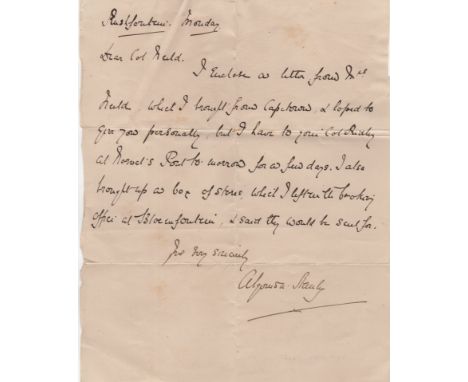 Monday
Dear Col Weld.
I Enclose a letter from Mrs
Weld, which I brought from Capetown, & hoped to
give you personally, but I have to join Col Ridley
at Norval's Pont to morrow for a few days. I also
brought up a box of stores, which I left with booking
office at Bloemfontein, & said they would be sent for.
Yrs very sincerely
Stanley